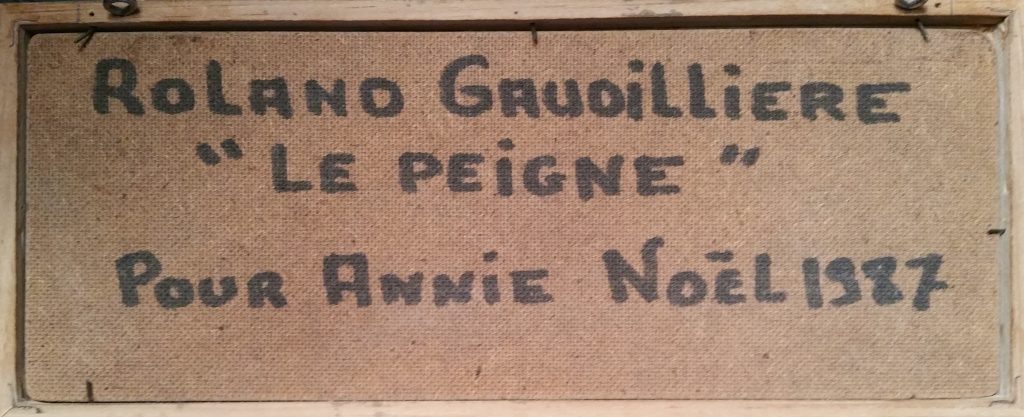 Roland Gaudilliere
"Le Peigne"
Pour Annie Noël 1987